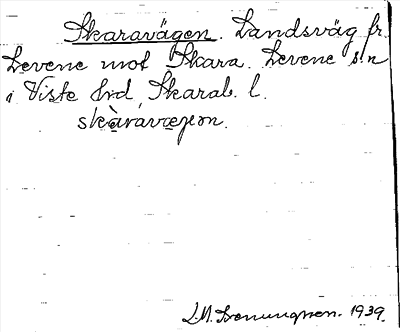 Skaravägen. Landsväg fr.
Levene mot Skara. Levene s:n
i Viste hrd, Skarab. l.
skàravæg̨en.
1939.